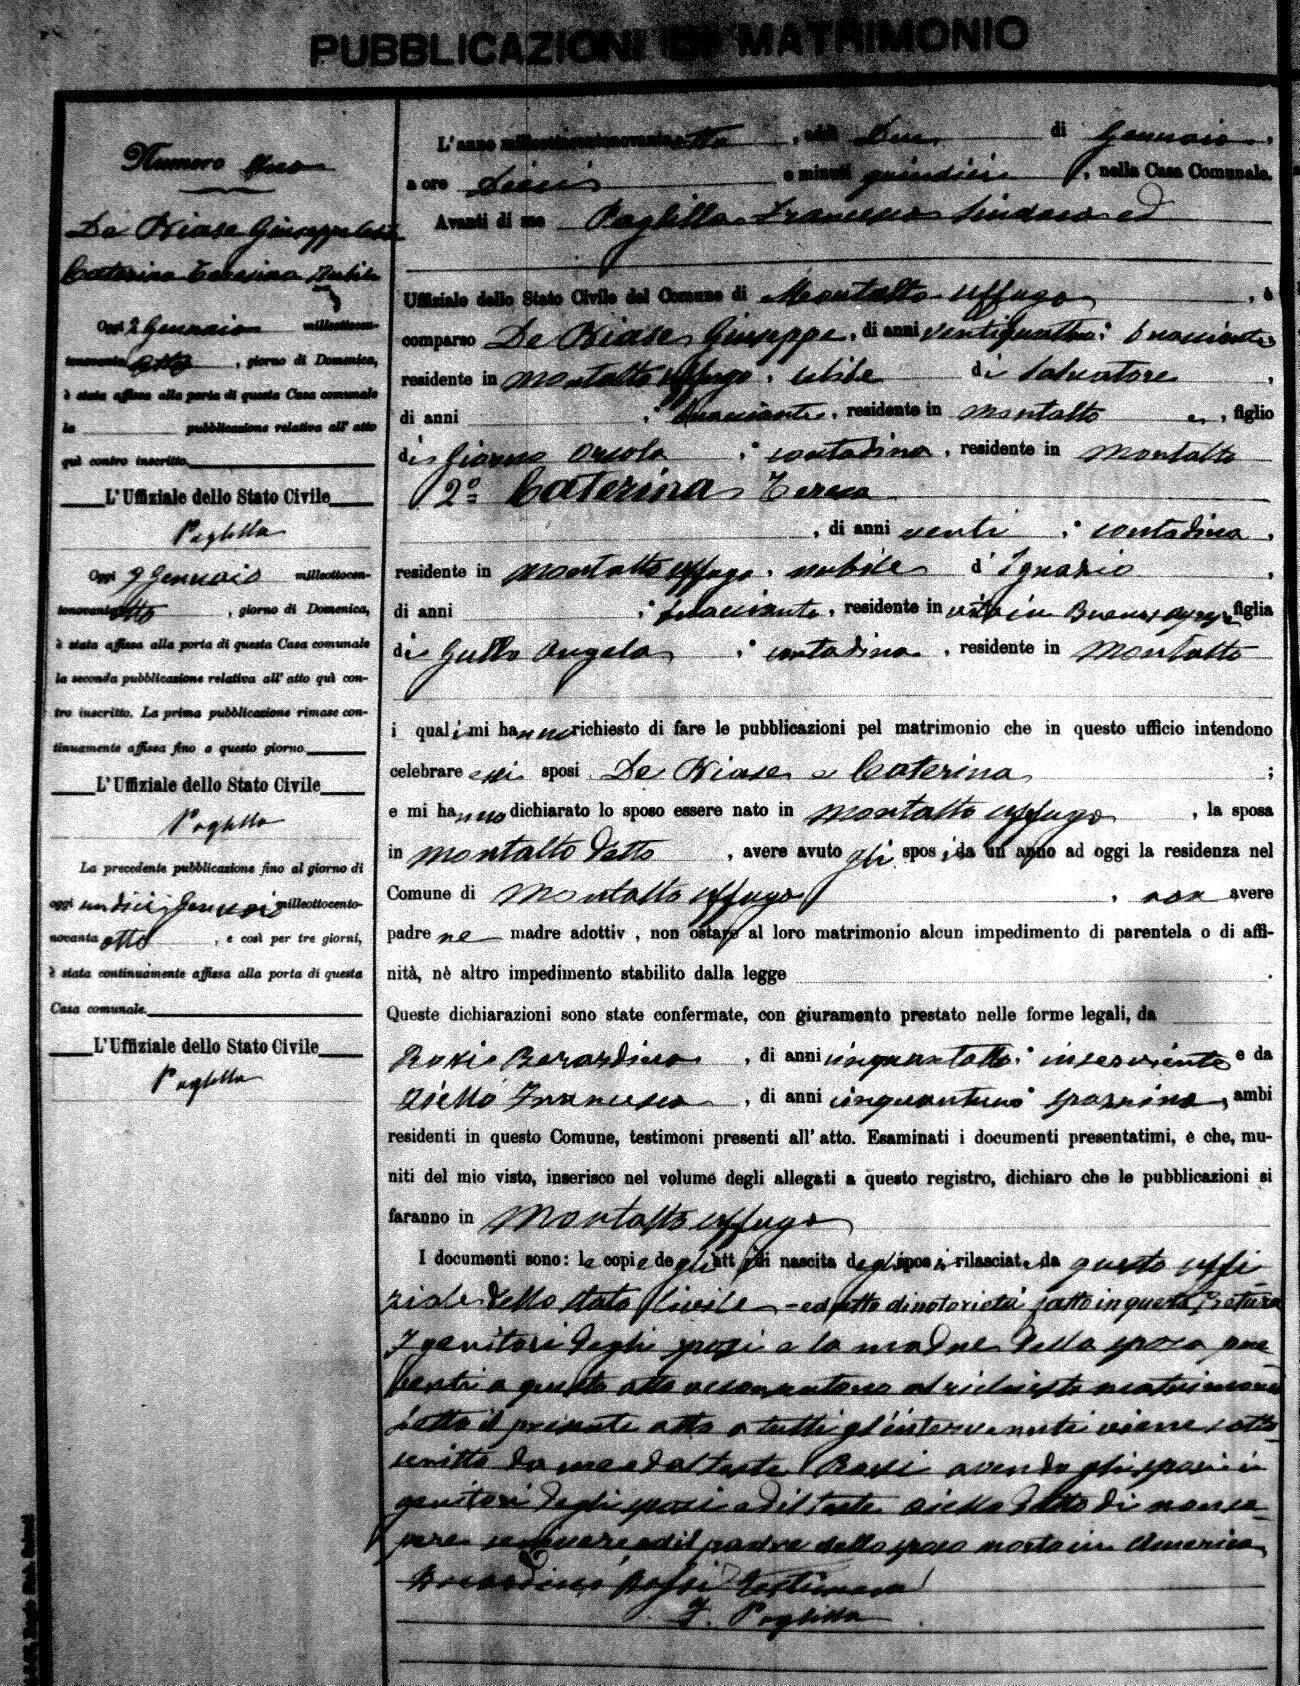 PUBBLICAZIONI DI MATRIMONIO
Numero Uno
De Biase Giuseppe celibe
Caterina Teresina nubile
Oggi 2 Gennaio milleottocen-
tonovantaotto, giorno di Domenica,
è stata affissa alla porta di questa Casa comunale
la pubblicazione relativa all' atto
quì contro inscritto.
L'Uffiziale dello Stato Civile
Paglilla
Oggi 9 Gennaio milleottocen-
tonovantaotto, giorno di Domenica,
è stata affissa alla porta di questa Casa comunale
la seconda pubblicazione relativa all' atto quì con-
tro inscritto. La prima pubblicazione rimase con-
tinuamente affissa fino a questo giorno.
L'Uffiziale dello Stato Civile
Paglilla
La precedente pubblicazione fino al giorno di
oggi undici Gennaio milleottocento-
novanta otto, e così per tre giorni,
è stata continuamente affissa alla porta di questa
Casa comunale.
L'Uffiziale dello Stato Civile
Paglilla
L'anno milleottocentonovantotto, addì Due di Gennaio,
a ore Dieci e minuti quindici, nella Casa Comunale.
Avanti di me Paglilla Francesco Sindaco ed
Uffiziale dello Stato Civile del Comune di Montalto Uffugo, è
comparso De Biase Giuseppe, di anni ventiquattro; bracciante
residente in Montalto Uffugo, celibe di Salvatore,
di anni ; bracciante, residente in Montalto e, figlio
di Giorno Orsola ; contadina, residente in Montalto
2° Caterina Teresa
, di anni venti ; contadina,
residente in Montalto Uffugo, nubile d'Ignazio,
di anni ; bracciante, residente in vita in Buenos Ayres figlia
di Gullo Angela ; contadina, residente in Montalto
i quali mi hanno richiesto di fare le pubblicazioni pel matrimonio che in questo ufficio intendono
celebrare essi sposi De Biase e Caterina ;
e mi hanno dichiarato lo sposo essere nato in Montalto Uffugo, la sposa
in Montalto detto, avere avuto gli sposi da un anno ad oggi la residenza nel
Comune di Montalto Uffugo, non avere
padre ne madre adottiv , non ostare al loro matrimonio alcun impedimento di parentela o di affi-
nità, nè altro impedimento stabilito dalla legge .
Queste dichiarazioni sono state confermate, con giuramento prestato nelle forme legali, da
Rossi Berardino, di anni cinquantotto; inserviente e da
Aiello Francesco, di anni cinquantuno spazzino, ambi
residenti in questo Comune, testimoni presenti all' atto. Esaminati i documenti presentatimi, e che, mu-
niti del mio visto, inserisco nel volume degli allegati a questo registro, dichiaro che le pubblicazioni si
faranno in Montalto Uffugo
I documenti sono: le copie degli atti di nascita degli sposi rilasciate da questo uffi-
ziale dello Stato Civile - ed atto di notorietà fatto in questa Pretura
I genitori degli sposi e la madre della sposa pre-
senti a questo atto acconsentono al richiesto matrimonio
Letto il presente atto a tutti gl'intervenuti viene sotto-
scritto da me e dal teste Rossi avendo gli sposi i
genitori degli sposi ed il teste Aiello detto di non sa-
pere scrivere ed il padre della sposa morto in America
Berardino Rossi Testimone
F. Paglilla